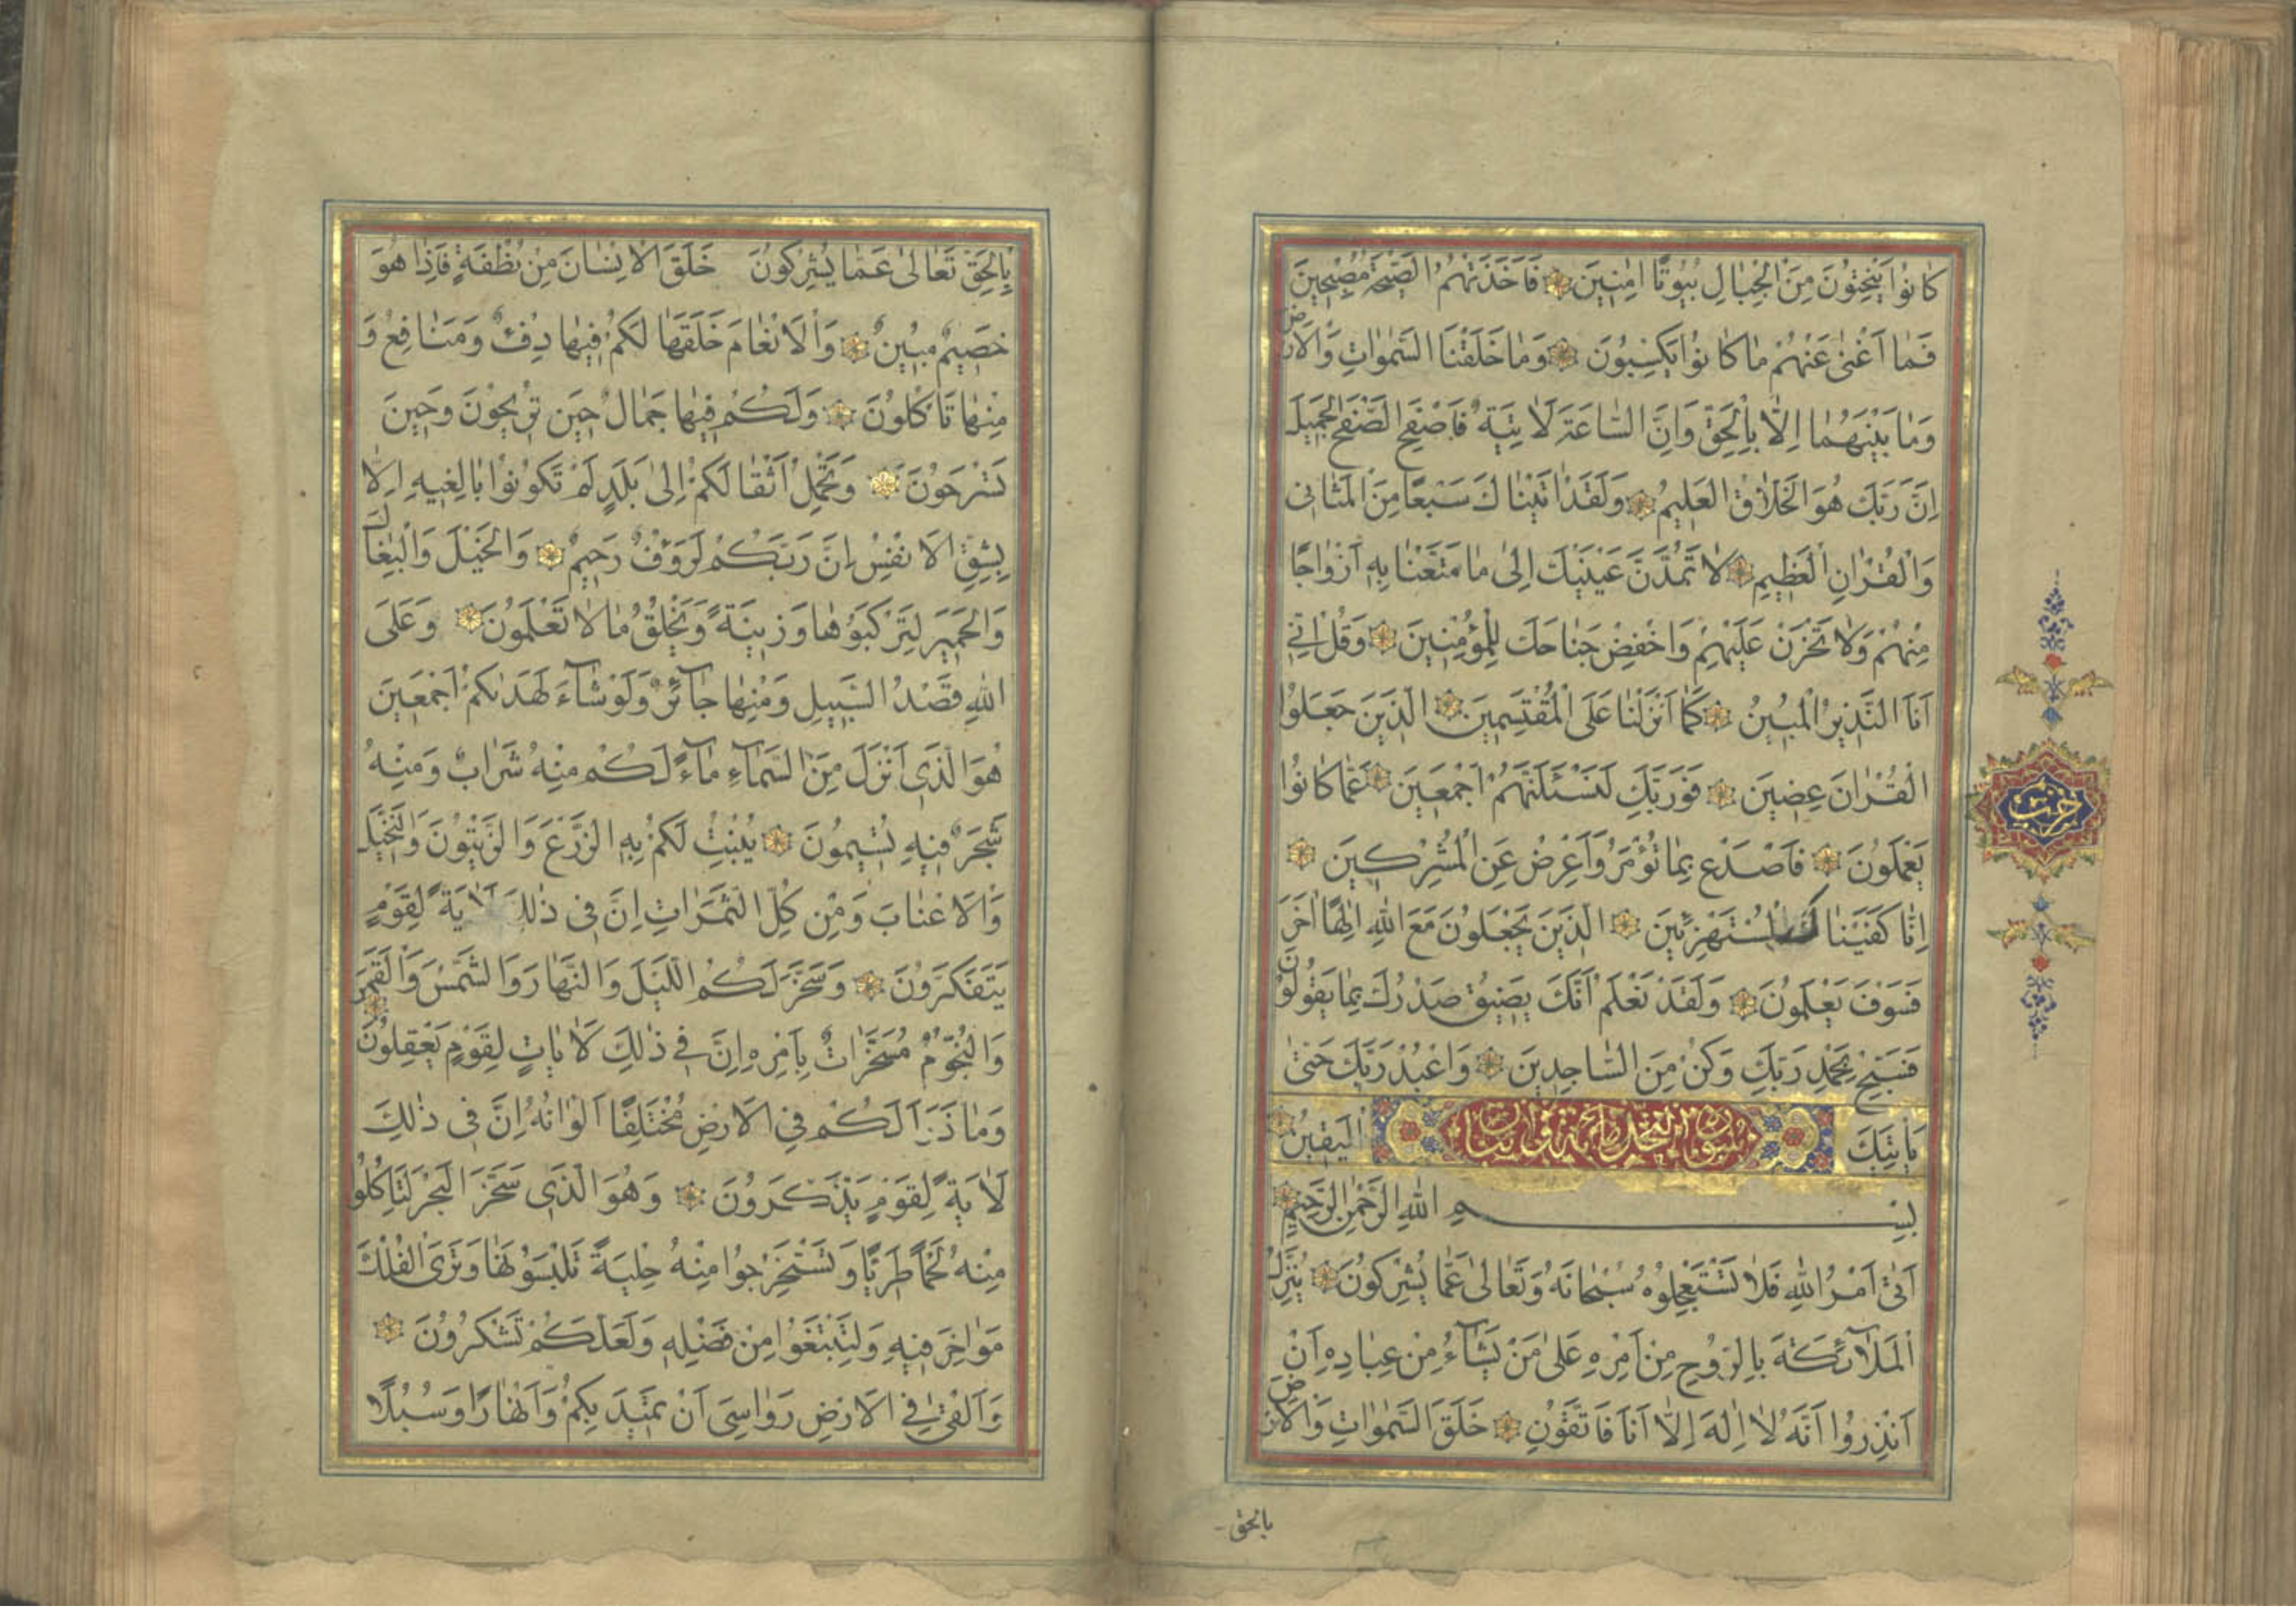 كَانُوا يَنْحِتُونَ مِنَ الْجِبَالِ بُيُوتًا اٰمِنِينَ فَاَخَذَتْهُمُ الصَّيْحَةُ مُصْبِحِينَ
فَمَا اَغْنٰى عَنْهُمْ مَا كَانُوا يَكْسِبُونَ وَمَا خَلَقْنَا السَّمٰوَاتِ وَالْاَرْضَ
وَمَا بَيْنَهُمَا اِلَّا بِالْحَقِّ وَاِنَّ السَّاعَةَ لَاٰتِيَةٌ فَاصْفَحِ الصَّفْحَ الْجَمِيلَ
اِنَّ رَبَّكَ هُوَ الْخَلَّاقُ الْعَلِيمُ وَلَقَدْ اٰتَيْنَاكَ سَبْعًا مِنَ الْمَثَانِى
وَالْقُرْاٰنَ الْعَظِيمَ لَا تَمُدَّنَّ عَيْنَيْكَ اِلٰى مَا مَتَّعْنَا بِهِ اَزْوَاجًا
مِنْهُمْ وَلَا تَحْزَنْ عَلَيْهِمْ وَاخْفِضْ جَنَاحَكَ لِلْمُؤْمِنِينَ وَقُلْ اِنِّى
اَنَا النَّذِيرُ الْمُبِينُ كَمَا اَنْزَلْنَا عَلَى الْمُقْتَسِمِينَ الَّذِينَ جَعَلُوا
الْقُرْاٰنَ عِضِينَ فَوَرَبِّكَ لَنَسْئَلَنَّهُمْ اَجْمَعِينَ عَمَّا كَانُوا
يَعْمَلُونَ فَاصْدَعْ بِمَا تُؤْمَرُ وَاَعْرِضْ عَنِ الْمُشْرِكِينَ
اِنَّا كَفَيْنَاكَ الْمُسْتَهْزِئِينَ الَّذِينَ يَجْعَلُونَ مَعَ اللّٰهِ اِلٰهًا اٰخَرَ
فَسَوْفَ يَعْلَمُونَ وَلَقَدْ نَعْلَمُ اَنَّكَ يَضِيقُ صَدْرُكَ بِمَا يَقُولُونَ
فَسَبِّحْ بِحَمْدِ رَبِّكَ وَكُنْ مِنَ السَّاجِدِينَ وَاعْبُدْ رَبَّكَ حَتّٰى
يَاْتِيَكَ الْيَقِينُ
بِسْمِ اللّٰهِ الرَّحْمٰنِ الرَّحِيمِ
اَتٰى اَمْرُ اللّٰهِ فَلَا تَسْتَعْجِلُوهُ سُبْحَانَهُ وَتَعَالٰى عَمَّا يُشْرِكُونَ يُنَزِّلُ
الْمَلَآئِكَةَ بِالرُّوحِ مِنْ اَمْرِهِ عَلٰى مَنْ يَشَآءُ مِنْ عِبَادِهِ اَنْ
اَنْذِرُوا اَنَّهُ لَا اِلٰهَ اِلَّا اَنَا فَاتَّقُونِ خَلَقَ السَّمٰوَاتِ وَالْاَرْضَ
بالحق
بِالْحَقِّ تَعَالٰى عَمَّا يُشْرِكُونَ خَلَقَ الْاِنْسَانَ مِنْ نُطْفَةٍ فَاِذَا هُوَ
خَصِيمٌ مُبِينٌ وَالْاَنْعَامَ خَلَقَهَا لَكُمْ فِيهَا دِفْءٌ وَمَنَافِعُ وَ
مِنْهَا تَاْكُلُونَ وَلَكُمْ فِيهَا جَمَالٌ حِينَ تُرِيحُونَ وَحِينَ
تَسْرَحُونَ وَتَحْمِلُ اَثْقَالَكُمْ اِلٰى بَلَدٍ لَمْ تَكُونُوا بَالِغِيهِ اِلَّا
بِشِقِّ الْاَنْفُسِ اِنَّ رَبَّكُمْ لَرَؤُفٌ رَحِيمٌ وَالْخَيْلَ وَالْبِغَالَ
وَالْحَمِيرَ لِتَرْكَبُوهَا وَزِينَةً وَيَخْلُقُ مَا لَا تَعْلَمُونَ وَعَلَى
اللّٰهِ قَصْدُ السَّبِيلِ وَمِنْهَا جَآئِرٌ وَلَوْ شَآءَ لَهَدٰىكُمْ اَجْمَعِينَ
هُوَ الَّذِى اَنْزَلَ مِنَ السَّمَآءِ مَآءً لَكُمْ مِنْهُ شَرَابٌ وَمِنْهُ
شَجَرٌ فِيهِ تُسِيمُونَ يُنْبِتُ لَكُمْ بِهِ الزَّرْعَ وَالزَّيْتُونَ وَالنَّخِيلَ
وَالْاَعْنَابَ وَمِنْ كُلِّ الثَّمَرَاتِ اِنَّ فِى ذٰلِكَ لَاٰيَةً لِقَوْمٍ
يَتَفَكَّرُونَ وَسَخَّرَ لَكُمُ اللَّيْلَ وَالنَّهَارَ وَالشَّمْسَ وَالْقَمَرَ
وَالنُّجُومُ مُسَخَّرَاتٌ بِاَمْرِهِ اِنَّ فِى ذٰلِكَ لَاٰيَاتٍ لِقَوْمٍ يَعْقِلُونَ
وَمَا ذَرَاَ لَكُمْ فِى الْاَرْضِ مُخْتَلِفًا اَلْوَانُهُ اِنَّ فِى ذٰلِكَ
لَاٰيَةً لِقَوْمٍ يَذَّكَّرُونَ وَهُوَ الَّذِى سَخَّرَ الْبَحْرَ لِتَاْكُلُوا
مِنْهُ لَحْمًا طَرِيًّا وَتَسْتَخْرِجُوا مِنْهُ حِلْيَةً تَلْبَسُونَهَا وَتَرَى الْفُلْكَ
مَوَاخِرَ فِيهِ وَلِتَبْتَغُوا مِنْ فَضْلِهِ وَلَعَلَّكُمْ تَشْكُرُونَ
وَاَلْقٰى فِى الْاَرْضِ رَوَاسِىَ اَنْ تَمِيدَ بِكُمْ وَاَنْهَارًا وَسُبُلًا